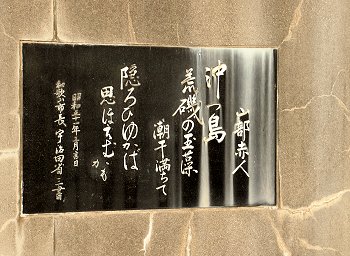 山部赤人
沖つ島
荒磯の玉藻
潮干満ちて
隠ろひゆかば
思ほえむかも
昭和五十一年 月 日
和歌山市長 宇治田省三書